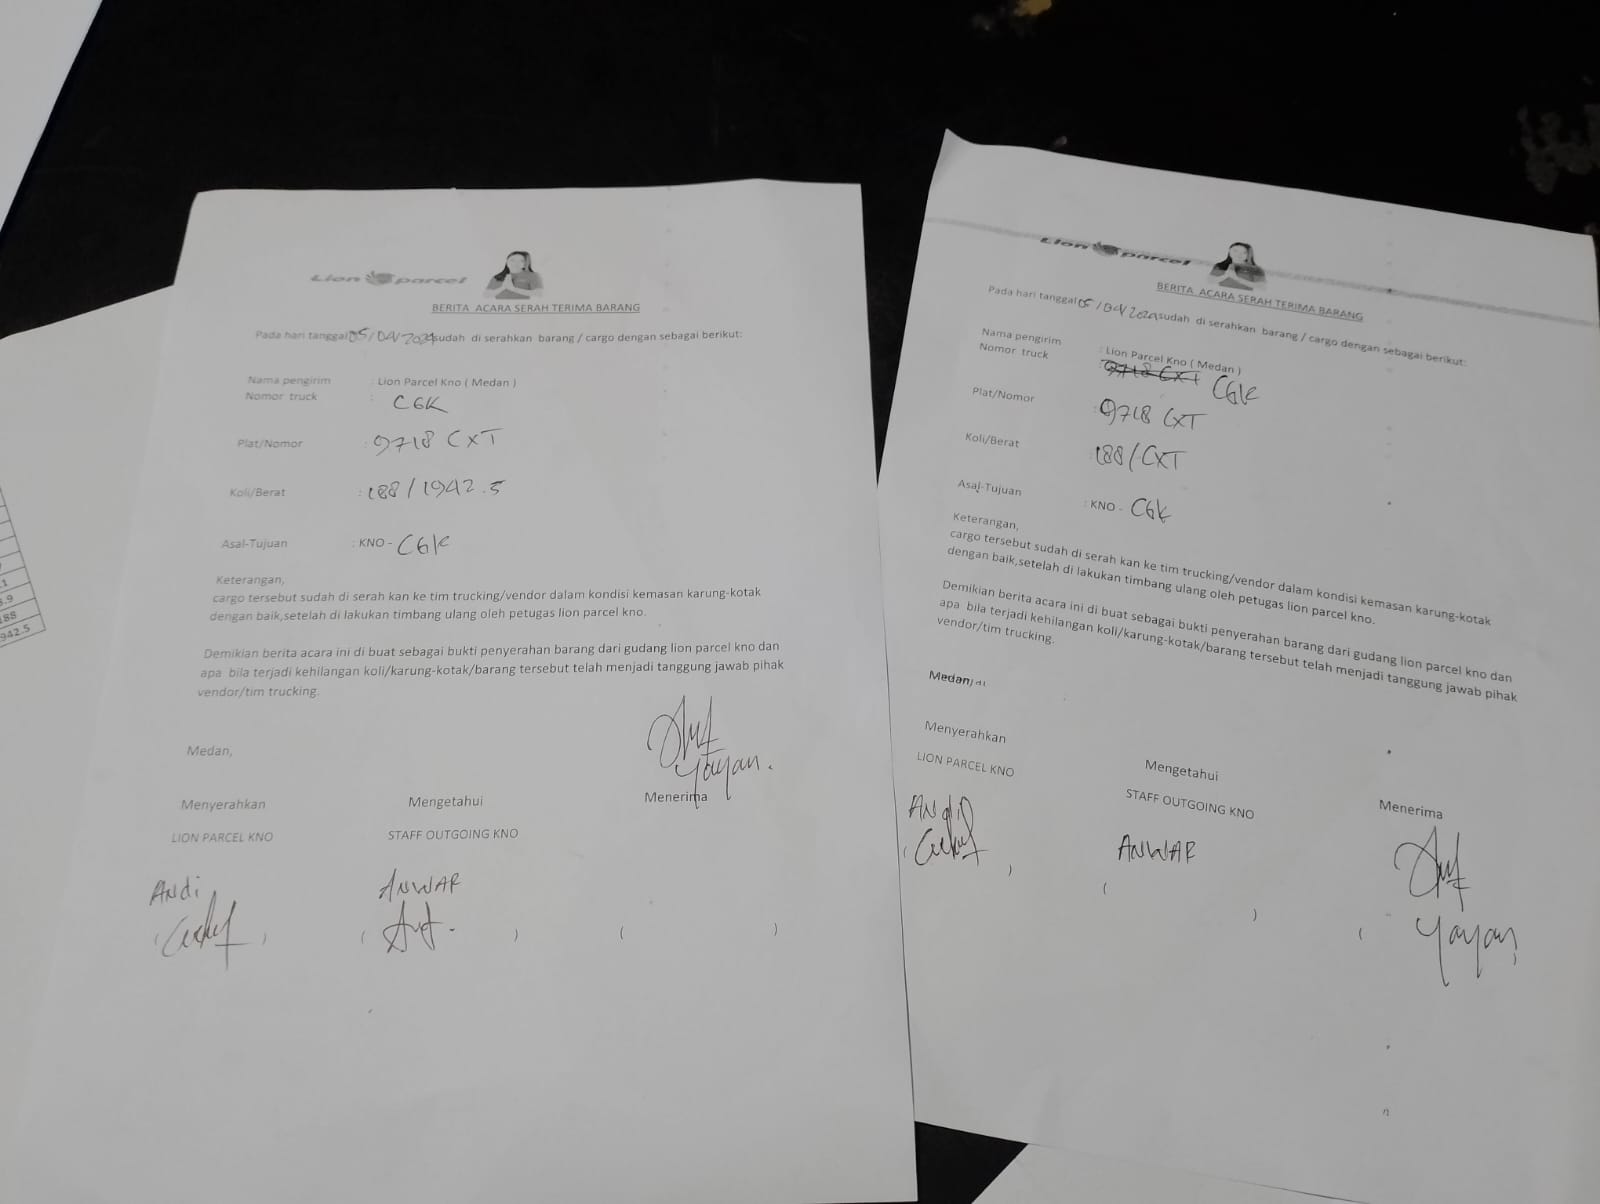 Lion parcel
BERITA ACARA SERAH TERIMA BARANG
Pada hari tanggal 05/04/2024 sudah di serahkan barang / cargo dengan sebagai berikut:
Nama pengirim : Lion Parcel Kno ( Medan )
Nomor truck : CGK
Plat/Nomor : 9718 CXT
Koli/Berat : 188/1942.5
Asal-Tujuan : KNO - CGK
Keterangan,
cargo tersebut sudah di serah kan ke tim trucking/vendor dalam kondisi kemasan karung-kotak
dengan baik,setelah di lakukan timbang ulang oleh petugas lion parcel kno.
Demikian berita acara ini di buat sebagai bukti penyerahan barang dari gudang lion parcel kno dan
apa bila terjadi kehilangan koli/karung-kotak/barang tersebut telah menjadi tanggung jawab pihak
vendor/tim trucking.
Medan,
Yayan.
Menyerahkan Mengetahui Menerima
LION PARCEL KNO STAFF OUTGOING KNO
ANdi ANWAR
( ) ( ) ( )
Lion parcel
BERITA ACARA SERAH TERIMA BARANG
Pada hari tanggal 05/04/2024 sudah di serahkan barang / cargo dengan sebagai berikut:
Nama pengirim : Lion Parcel Kno ( Medan )
Nomor truck : 9718 CXT CGK
Plat/Nomor : 9718 CXT
Koli/Berat : 188/CXT
Asal-Tujuan : KNO - CGK
Keterangan,
cargo tersebut sudah di serah kan ke tim trucking/vendor dalam kondisi kemasan karung-kotak
dengan baik,setelah di lakukan timbang ulang oleh petugas lion parcel kno.
Demikian berita acara ini di buat sebagai bukti penyerahan barang dari gudang lion parcel kno dan
apa bila terjadi kehilangan koli/karung-kotak/barang tersebut telah menjadi tanggung jawab pihak
vendor/tim trucking.
Medan,
Menyerahkan Mengetahui Menerima
LION PARCEL KNO STAFF OUTGOING KNO
ANdi ANWAR
Yayan
( ) ( ) ( )
942.5